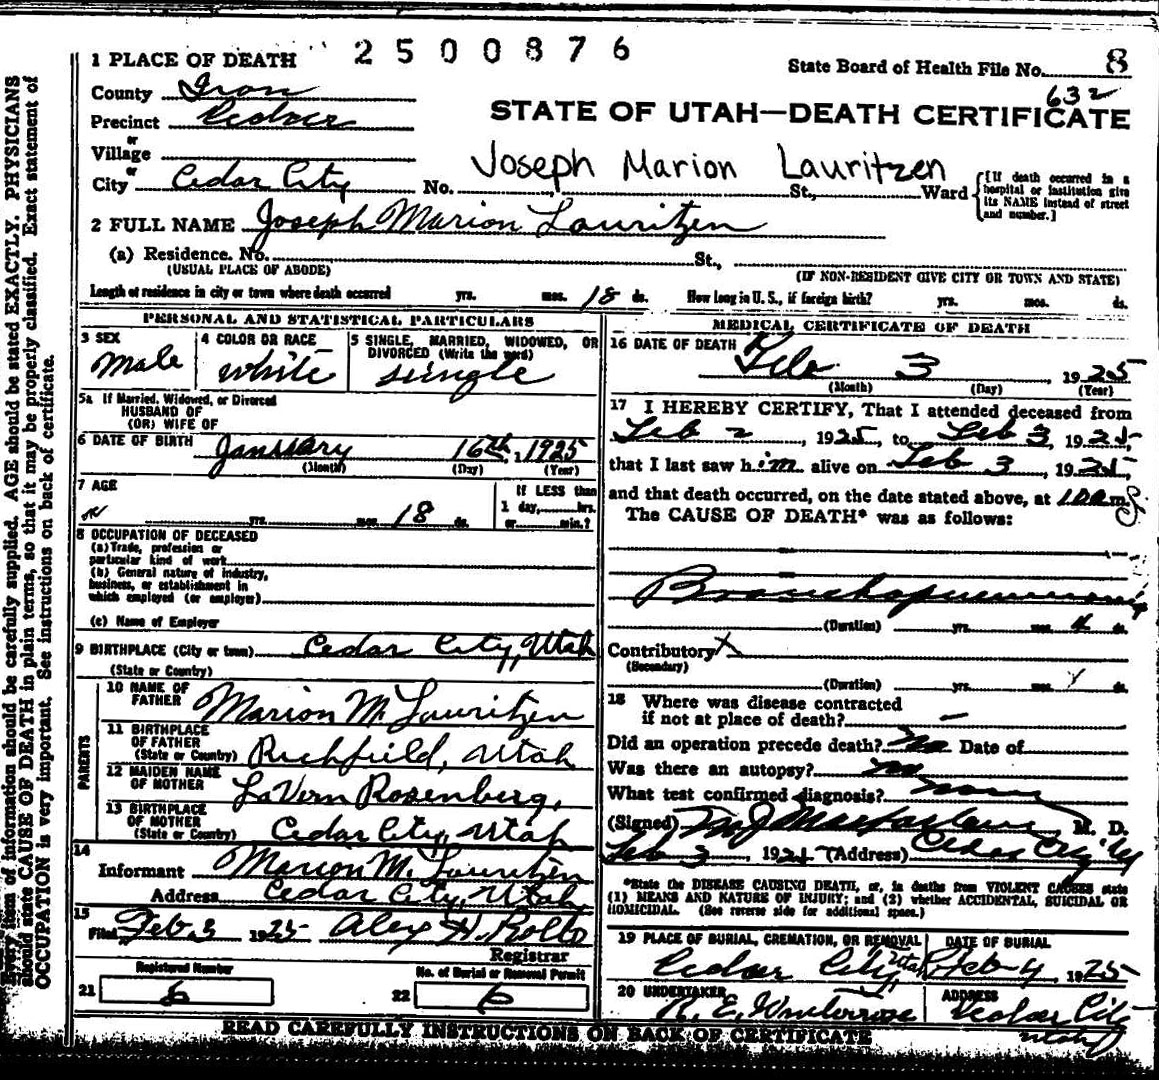 2500876
1 PLACE OF DEATH
State Board of Health File No. 8
County Iron
632
STATE OF UTAH—DEATH CERTIFICATE
Precinct Cedar
or
Village
Joseph Marion Lauritzen
or
City Cedar City No. St., Ward
[If death occurred in a hospital or institution give its NAME instead of street and number.]
2 FULL NAME Joseph Marion Lauritzen
(a) Residence. No. St.,
(USUAL PLACE OF ABODE) (IF NON-RESIDENT GIVE CITY OR TOWN AND STATE)
Length of residence in city or town where death occurred yrs. mos. 18 ds. How long in U. S., if foreign birth? yrs. mos. ds.
PERSONAL AND STATISTICAL PARTICULARS
3 SEX
Male
4 COLOR OR RACE
white
5 SINGLE, MARRIED, WIDOWED, OR
DIVORCED (Write the word)
single
5a If Married, Widowed, or Divorced
HUSBAND OF
(OR) WIFE OF
6 DATE OF BIRTH January 16th, 1925
(Month) (Day) (Year)
7 AGE
yrs. mos. 18 ds.
If LESS than
1 day, hrs.
or min.?
8 OCCUPATION OF DECEASED
(a) Trade, profession or
particular kind of work
(b) General nature of industry,
business, or establishment in
which employed (or employer)
(c) Name of Employer
9 BIRTHPLACE (City or town) Cedar City, Utah
(State or Country)
PARENTS
10 NAME OF
FATHER Marion M. Lauritzen
11 BIRTHPLACE
OF FATHER
(State or Country) Richfield, Utah
12 MAIDEN NAME
OF MOTHER LaVern Rosenberg,
13 BIRTHPLACE
OF MOTHER
(State or Country) Cedar City, Utah
14
Informant Marion M. Lauritzen
Address Cedar City, Utah
15
Filed Feb 3 1925 Alex H. Rollo
Registrar
Registered Number
21 6
No. of Burial or Removal Permit
22 6
MEDICAL CERTIFICATE OF DEATH
16 DATE OF DEATH
Feb 3, 1925
(Month) (Day) (Year)
17 I HEREBY CERTIFY, That I attended deceased from
Feb 2, 1925, to Feb 3, 1925,
that I last saw him alive on Feb 3, 1925,
and that death occurred, on the date stated above, at m.
The CAUSE OF DEATH* was as follows:
Bronchopneumonia
(Duration) yrs. mos. ds.
Contributory
(Secondary)
(Duration) yrs. mos. ds.
18 Where was disease contracted
if not at place of death? —
Did an operation precede death? no Date of
Was there an autopsy? no
What test confirmed diagnosis? none
(Signed) M J Macfarlane, M. D.
Feb 3, 1925 (Address) Cedar City U
*State the DISEASE CAUSING DEATH, or, in deaths from VIOLENT CAUSES state
(1) MEANS AND NATURE OF INJURY; and (2) whether ACCIDENTAL, SUICIDAL OR
HOMICIDAL. (See reverse side for additional space.)
19 PLACE OF BURIAL, CREMATION, OR REMOVAL
Cedar City, Utah
DATE OF BURIAL
Feb 4 1925
20 UNDERTAKER
ADDRESS
Cedar City
Utah
READ CAREFULLY INSTRUCTIONS ON BACK OF CERTIFICATE
Every item of information should be carefully supplied. AGE should be stated EXACTLY. PHYSICIANS
should state CAUSE OF DEATH in plain terms, so that it may be properly classified. Exact statement of
OCCUPATION is very important. See instructions on back of certificate.